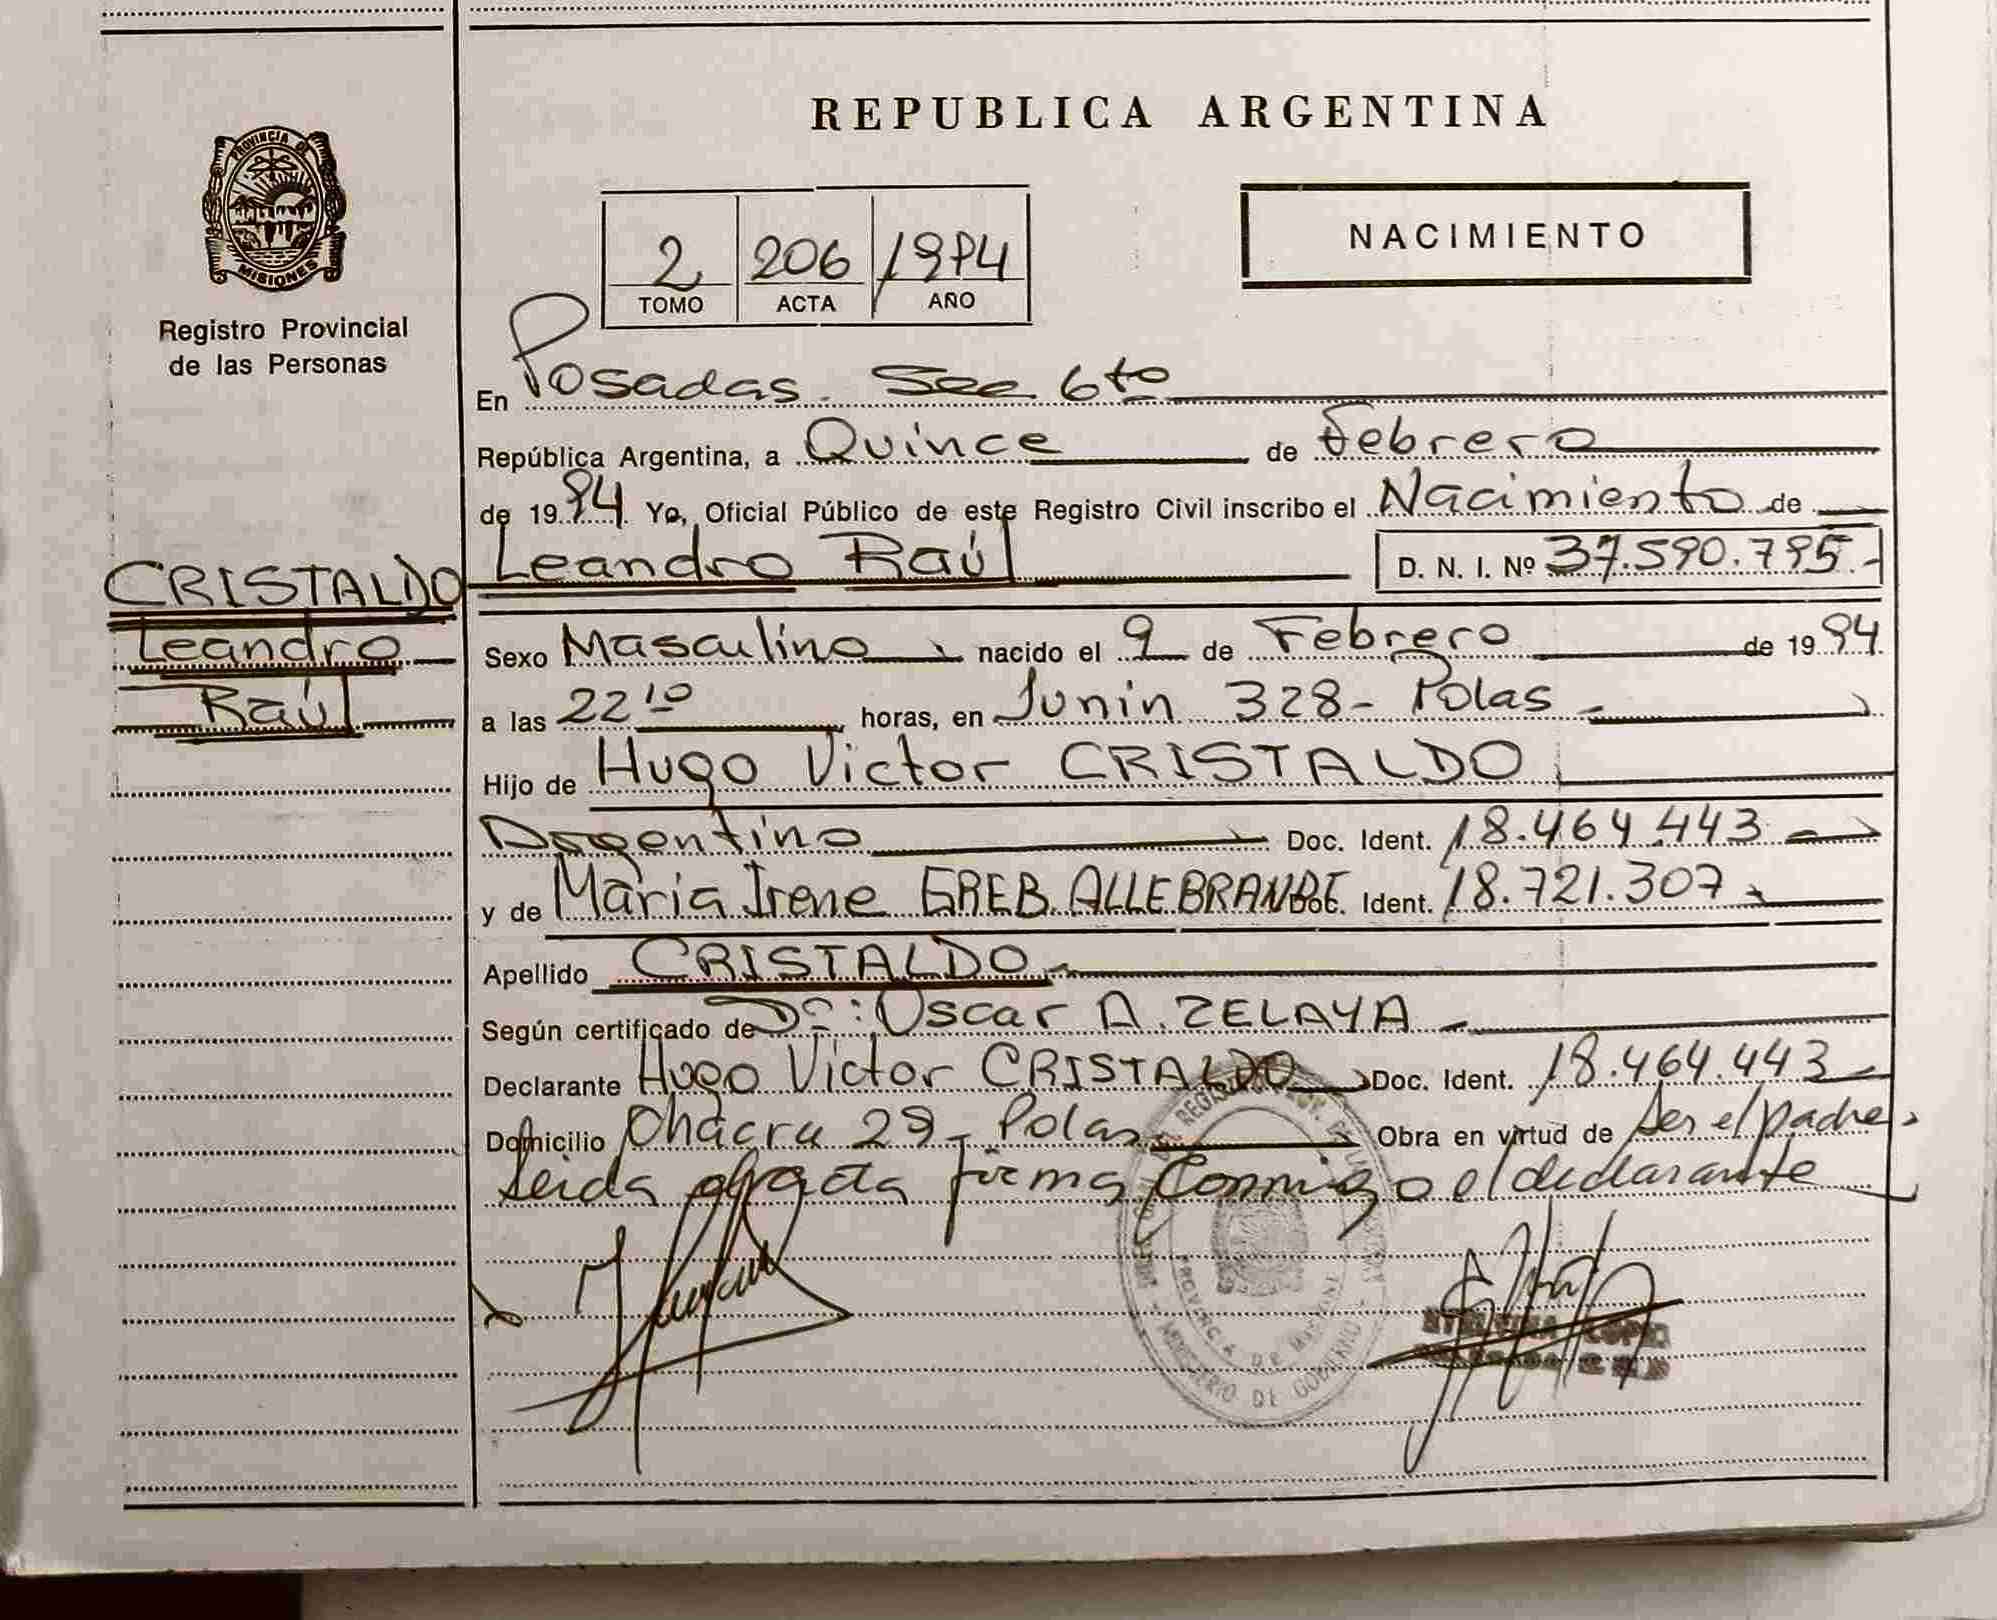 PROVINCIA DE
MISIONES
Registro Provincial
de las Personas
CRISTALDO
Leandro
Raúl
REPUBLICA ARGENTINA
2 206 1994
TOMO ACTA AÑO
NACIMIENTO
En Posadas. Sec 6to
República Argentina, a Quince de Febrero
de 1994. Yo, Oficial Público de este Registro Civil inscribo el Nacimiento de
Leandro Raúl D. N. I. Nº 37.590.795.-
Sexo Masculino nacido el 9 de Febrero de 1994.
a las 22 10 horas, en Junin 328- Pdas -
Hijo de Hugo Victor CRISTALDO
Argentino Doc. Ident. 18.464.443
y de Maria Irene GREB. ALLEBRANDT Doc. Ident. 18.721.307
Apellido CRISTALDO
Según certificado de Dr: Oscar A. ZELAYA
Declarante Hugo Victor CRISTALDO Doc. Ident. 18.464.443
Domicilio Chacra 29- Pdas Obra en virtud de Ser el padre.
Leida el acta firma Conmigo el declarante
PROVINCIA DE MISIONES
MINISTERIO DE GOBIERNO